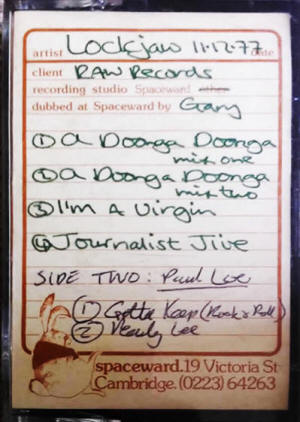 artist Lockjaw 11·12·77 date
client RAW Records
recording studio Spaceward other
dubbed at Spaceward by Gary
① A Doonga Doonga
mix one
② A Doonga Doonga
mix two
③ I'm A Virgin
④ Journalist Jive
SIDE TWO: Paul Lee
① Gotta Keep (Rock 'n' Roll)
② Ready Lee
spaceward. 19 Victoria St
Cambridge. (0223) 64263